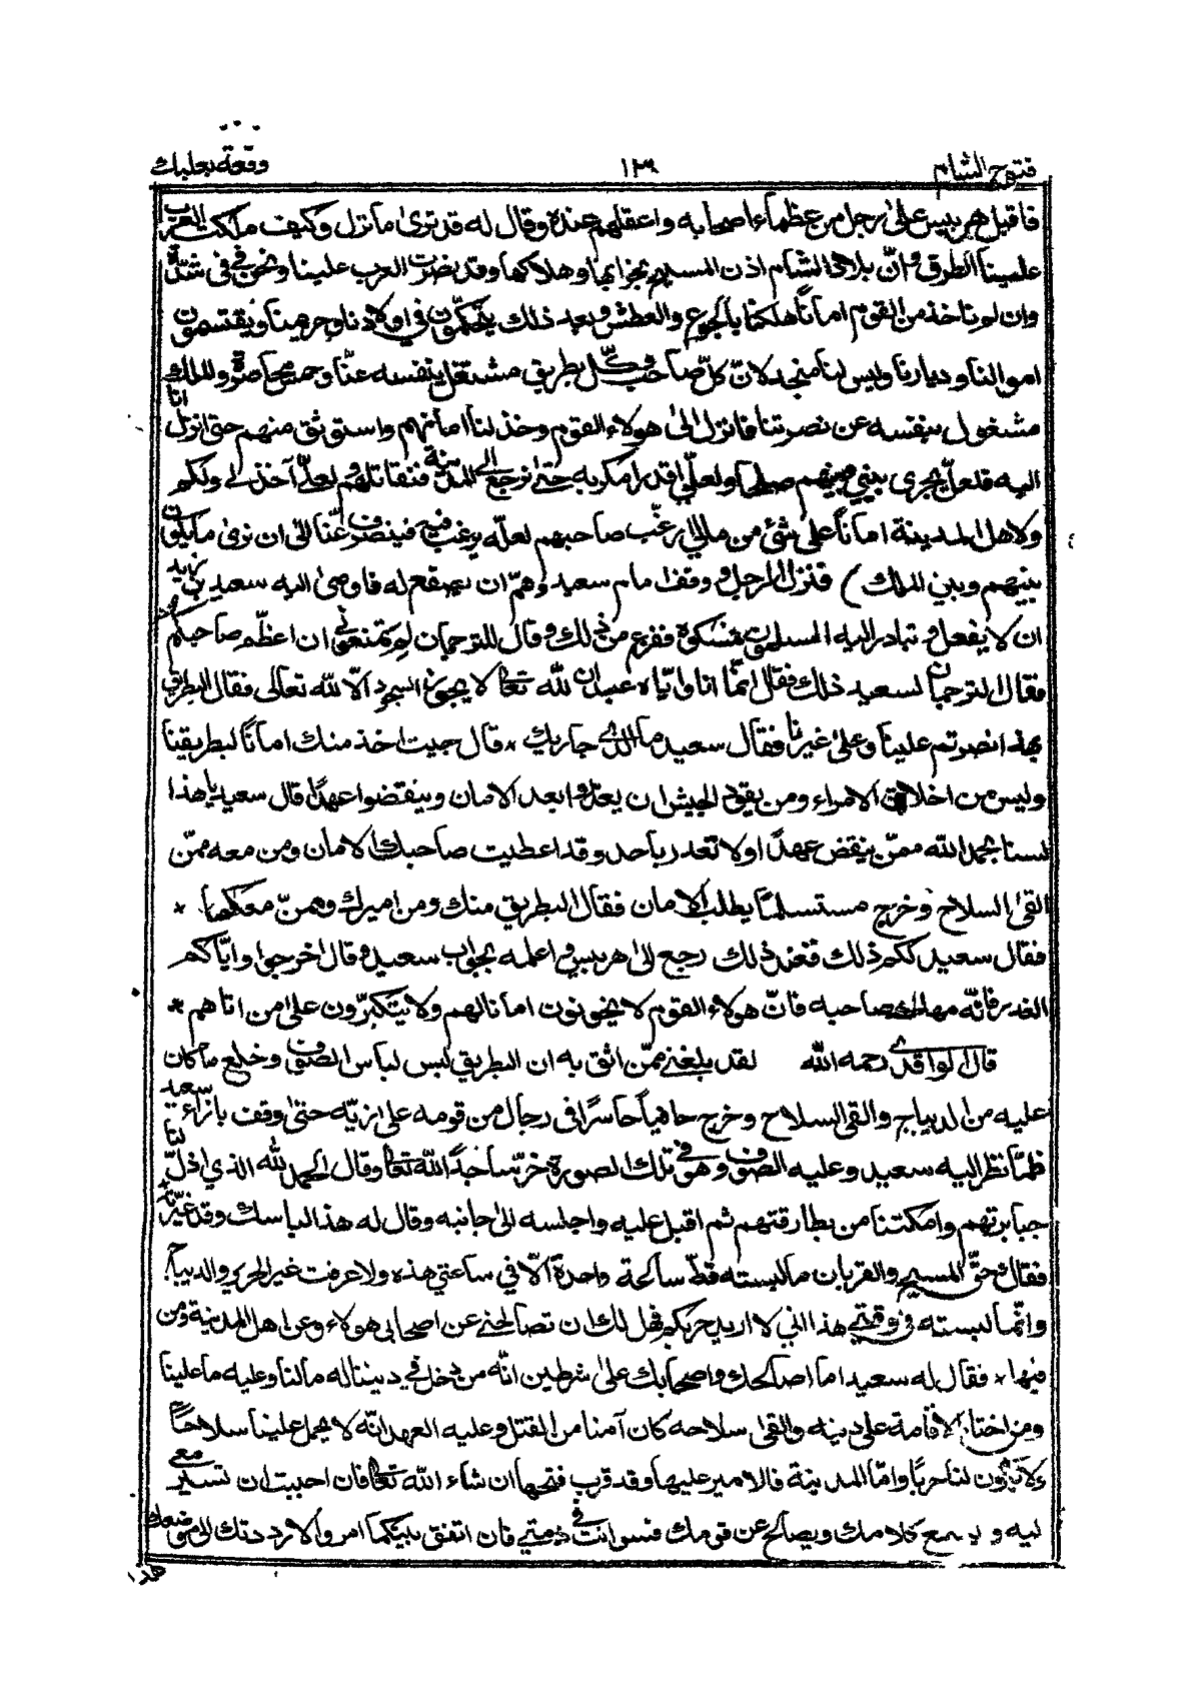 فتوح الشام ١٣٩ وقعة بعلبك
فاقبل هربيس على رجل من عظماء اصحابه واعقلهم عنده وقال له قد ترى ما نزل وكيف ملكت العرب
علينا الطرق وانّ بلاد الشام اذن المسيح بخرابها وهلاكها وقد نصرت العرب علينا ونحن في شدّة
وان لم ناخذ من القوم امانًا هلكنا بالجوع والعطش وبعد ذلك يتحكّمون في اولادنا وحريمنا ويقتسمون
اموالنا وديارنا وليس لنا منجد لانّ كلّ صاحب وكلّ بطريق مشتغل بنفسه عنّا وحمص محاصرة والملك
مشغول بنفسه عن نصرتنا فانزل الى هولاء القوم وخذ لنا امانهم واستوثق منهم حتى انزل انا
اليه فلعلّ يجرى بيني وبينهم صلحًا ولعلّي اقدر امكر به حتى نرجع الى المدينة فنقاتلهم ولعلّي آخذ لي ولكم
ولاهل المدينة امانًا على شئ من مالي ارغّب صاحبهم لعلّه يرغب فيه فينصرف عنّا الى ان نرى ما يكون
بينهم وبين الملك) فنزل الرجل ووقف امام سعيد وهمّ ان يصقع له فاومى اليه سعيد بن زيد
ان لا يفعل وتبادر اليه المسلمون فمسكوه ففزع من ذلك وقال للترجمان لم تمنعوني ان اعظّم صاحبكم
فقال الترجمان لسعيد ذلك فقال انّما انا وايّاه عبدان لله تعالى لا يجوز السجود الّا لله تعالى فقال البطريق
بهذا نصرتم علينا وعلى غيرنا فقال سعيد ما الذي جاء بك * قال جيت اخذ منك امانًا لبطريقنا
وليس من اخلاق الامراء ومن يقود الجيش ان يعذروا بعد الامان وينقضوا عهدًا قال سعيد يا هذا
لسنا بحمد الله ممّن ينقض عهدًا ولا تغدر باحد وقد اعطيت صاحبك الامان ومن معه ممّن
القى السلاح وخرج مستسلمًا يطلب الامان فقال البطريق منك ومن اميرك وممنّ معكما *
فقال سعيد لكم ذلك فعند ذلك رجع الى هربيس واعلمه بجواب سعيد وقال اخرجوا وايّاكم
الغدر فانّه مهلك صاحبه فانّ هولاء القوم لا يخونون امانا لهم ولا يتكبّرون على من اتاهم *
قال الواقدي رحمه الله لقد بلغني ممّن اثق به ان البطريق لبس لباس الصوف وخلع ما كان
عليه من الديباج والقى السلاح وخرج حافيًا حاسرًا في رجال من قومه على زيّه حتى وقف بازاء سعيد
فلمّا نظر اليه سعيد وعليه الصوف وهو في تلك الصورة خرّ ساجدًا لله تعالى وقال الحمد لله الذي اذلّ لنا
جبابرتهم وامكننا من بطارقتهم ثم اقبل عليه واجلسه الى جانبه وقال له هذا لباسك وقد غيّرته
فقال وحقّ المسيح والقربان ما لبسته قطّ ساعة واحدة الّا في ساعتي هذه ولا عرفت غير الحرير والديباج
وانّما لبسته في وقتي هذا اني لا اريد حربكم فهل لك ان تصالحني عن اصحابي هولاء وعن اهل المدينة ومن
فيها * فقال له سعيد اما اصالحك واصحابك على شرطين انّه من دخل في ديننا له ما لنا وعليه ما علينا
ومن اختار الاقامة على دينه والقى سلاحه كان آمنا من القتل وعليه العهد انّه لا يحمل علينا سلاحًا
ولا يكون لنا حربًا وامّا المدينة فالامير عليها وقد قرب فتحها ان شاء الله تعالى فان احببت ان تسير معي
ليه ويسمع كلامك ويصالح عن قومك فسر وانت في ذمتي فان اتفق بينكما امر والا رددتك الى موضعك
هذا